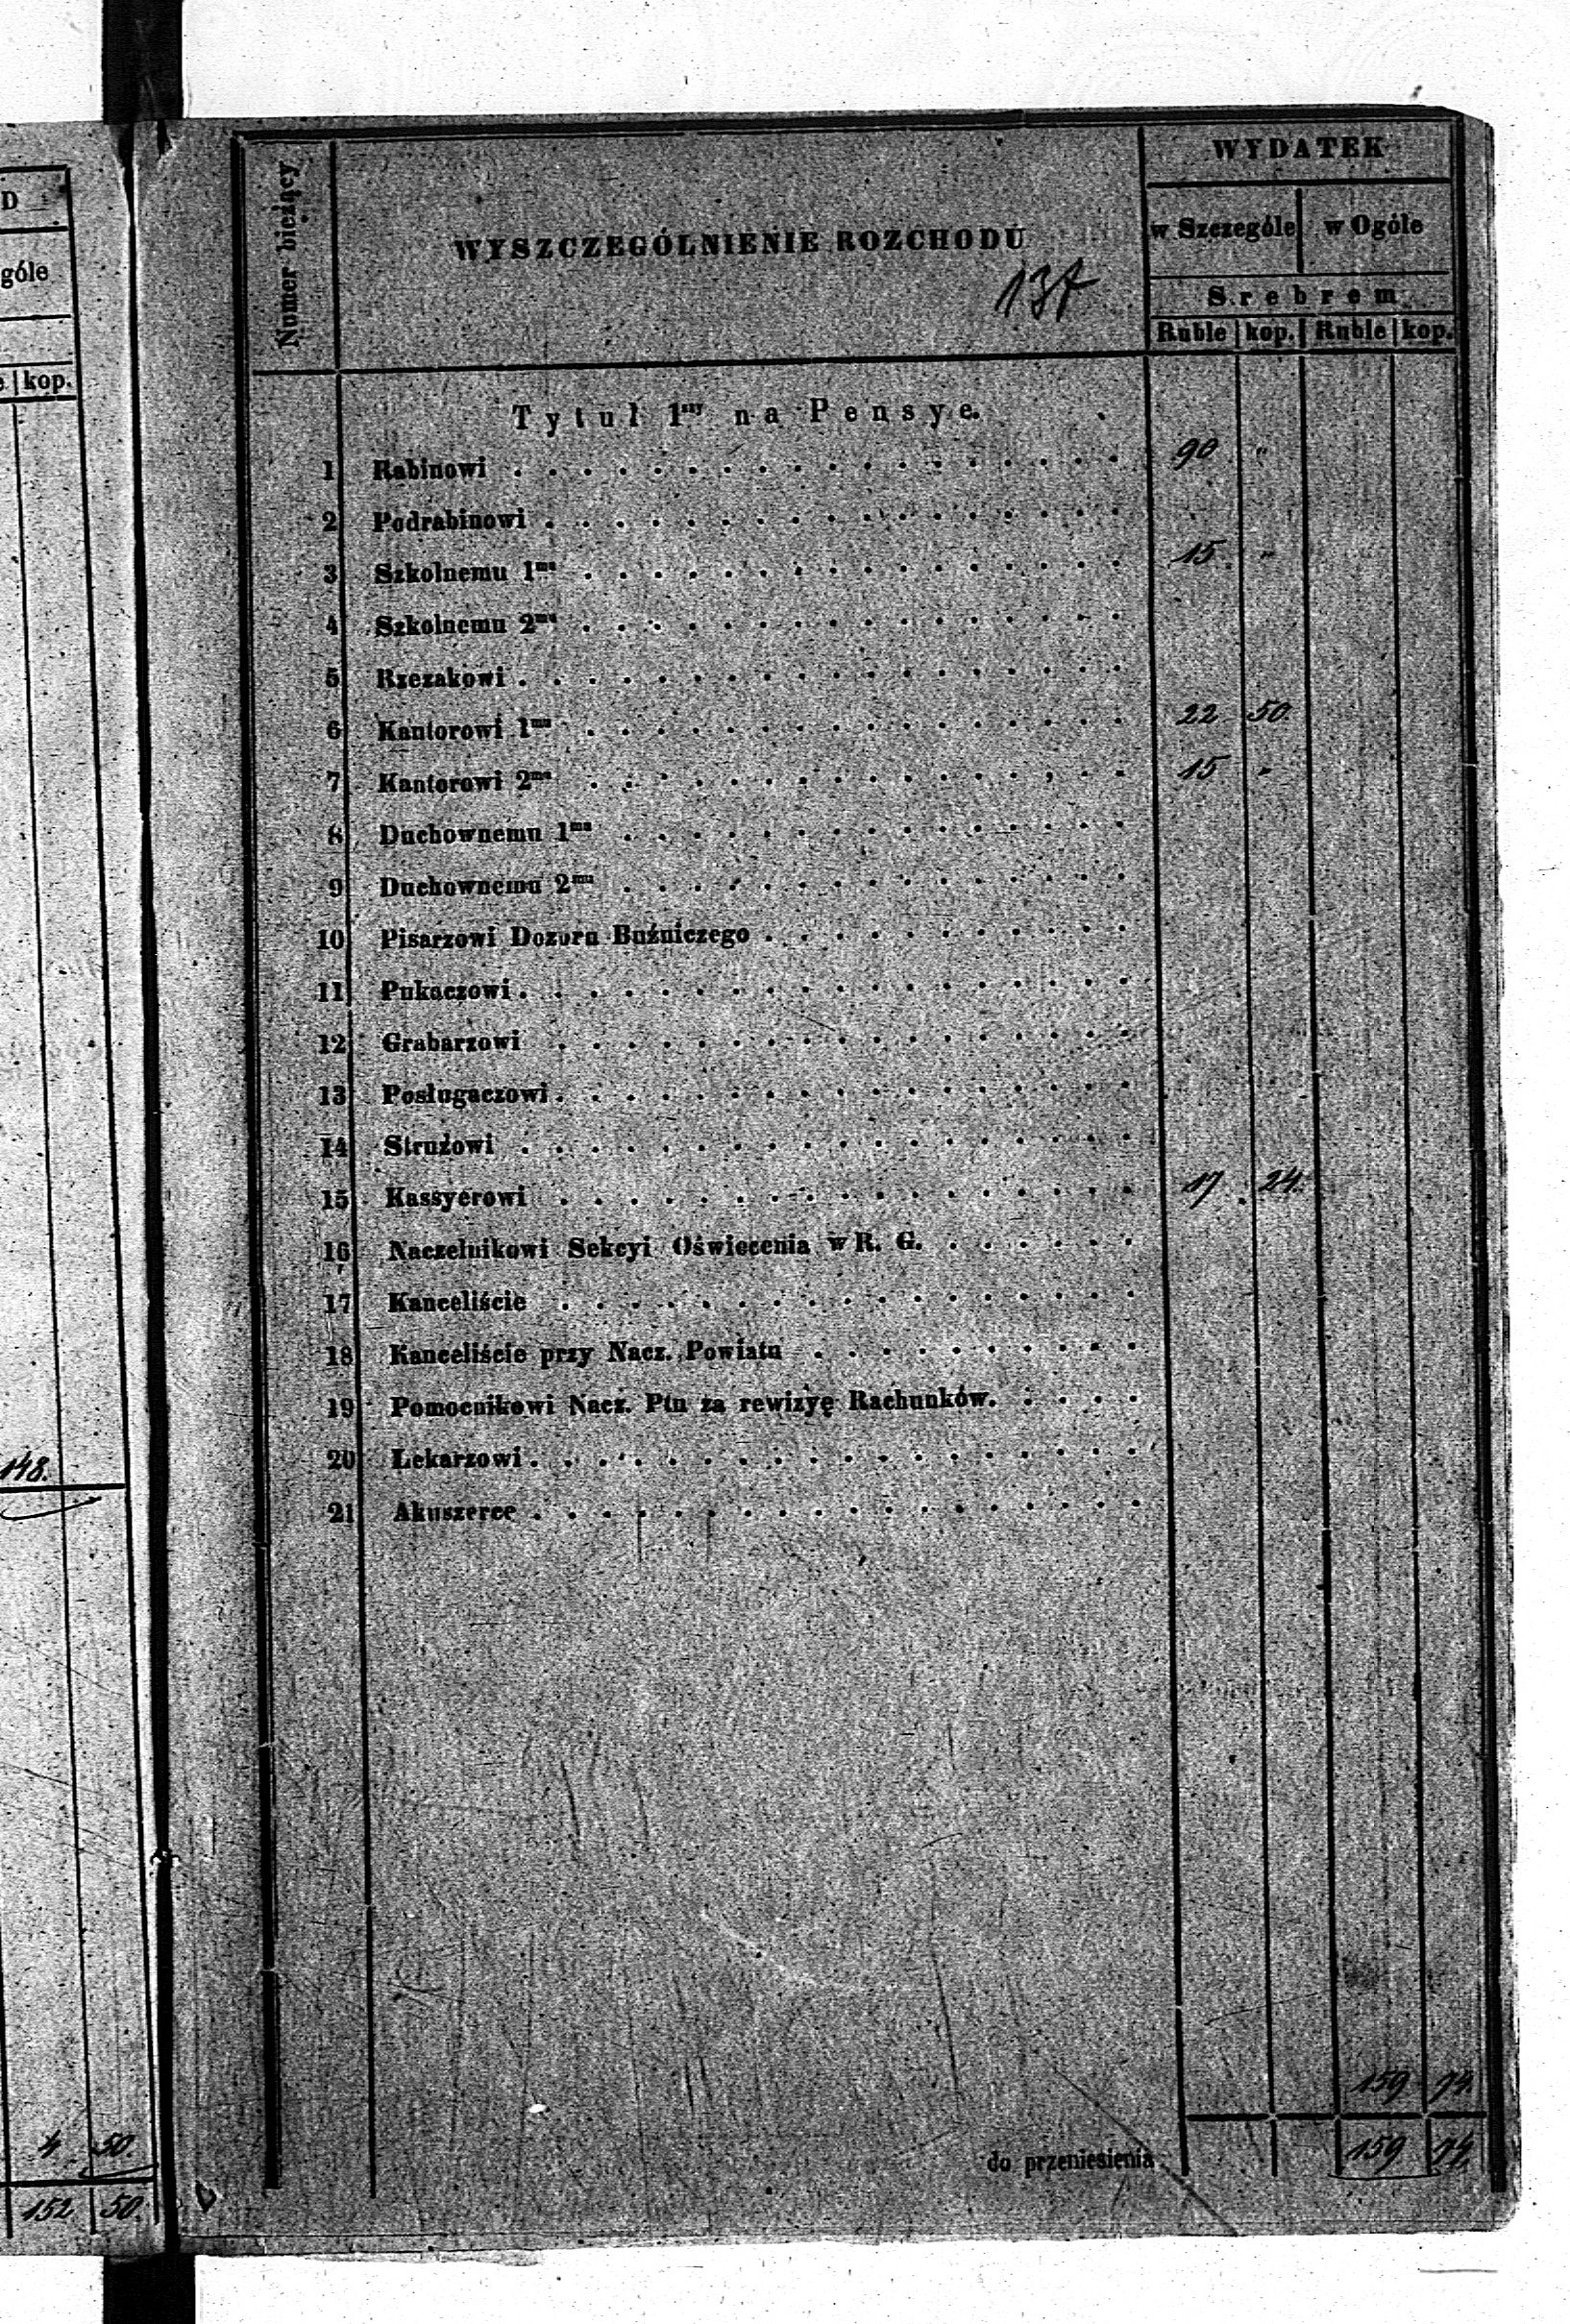 D
góle
kop.
148.
4 50
152 50.
Numer bieżący
WYSZCZEGÓLNIENIE ROZCHODU
137
WYDATEK
w Szczególe w Ogóle
Srebrem
Ruble kop. Ruble kop.
Tytuł 1ny na Pensye.
1 Rabinowi . . . . . 90 "
2 Podrabinowi . . . . .
3 Szkolnemu 1mu . . . . . 15 "
4 Szkolnemu 2mu . . . . .
5 Rzezakowi . . . . .
6 Kantorowi 1mu . . . . . 22 50.
7 Kantorowi 2mu . . . . . 15 "
8 Duchownemu 1mu . . . . .
9 Duchownemu 2mu . . . . .
10 Pisarzowi Dozoru Bużniczego . . . . .
11 Pukaczowi . . . . .
12 Grabarzowi . . . . .
13 Posługaczowi . . . . .
14 Strużowi . . . . .
15 Kassyerowi . . . . . 17 24.
16 Naczelnikowi Sekcyi Oświecenia w R. G. . . . . .
17 Kanceliście . . . . .
18 Kanceliście przy Nacz. Powiatu . . . . .
19 Pomocnikowi Nacz. Ptu za rewizyę Rachunków. . . . .
20 Lekarzowi . . . . .
21 Akuszerce . . . . .
159 74.
do przeniesienia 159 74.